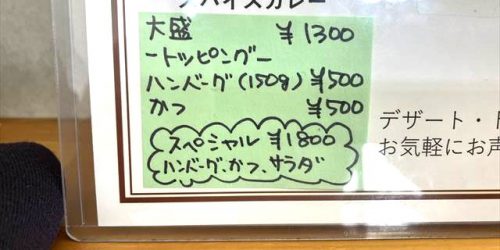 スパイスカレー
大盛 ¥1300
ートッピングー
ハンバーグ(150g) ¥500
かつ ¥500
スペシャル ¥1800
ハンバーグ、かつ、サラダ
デザート・ド
お気軽にお声